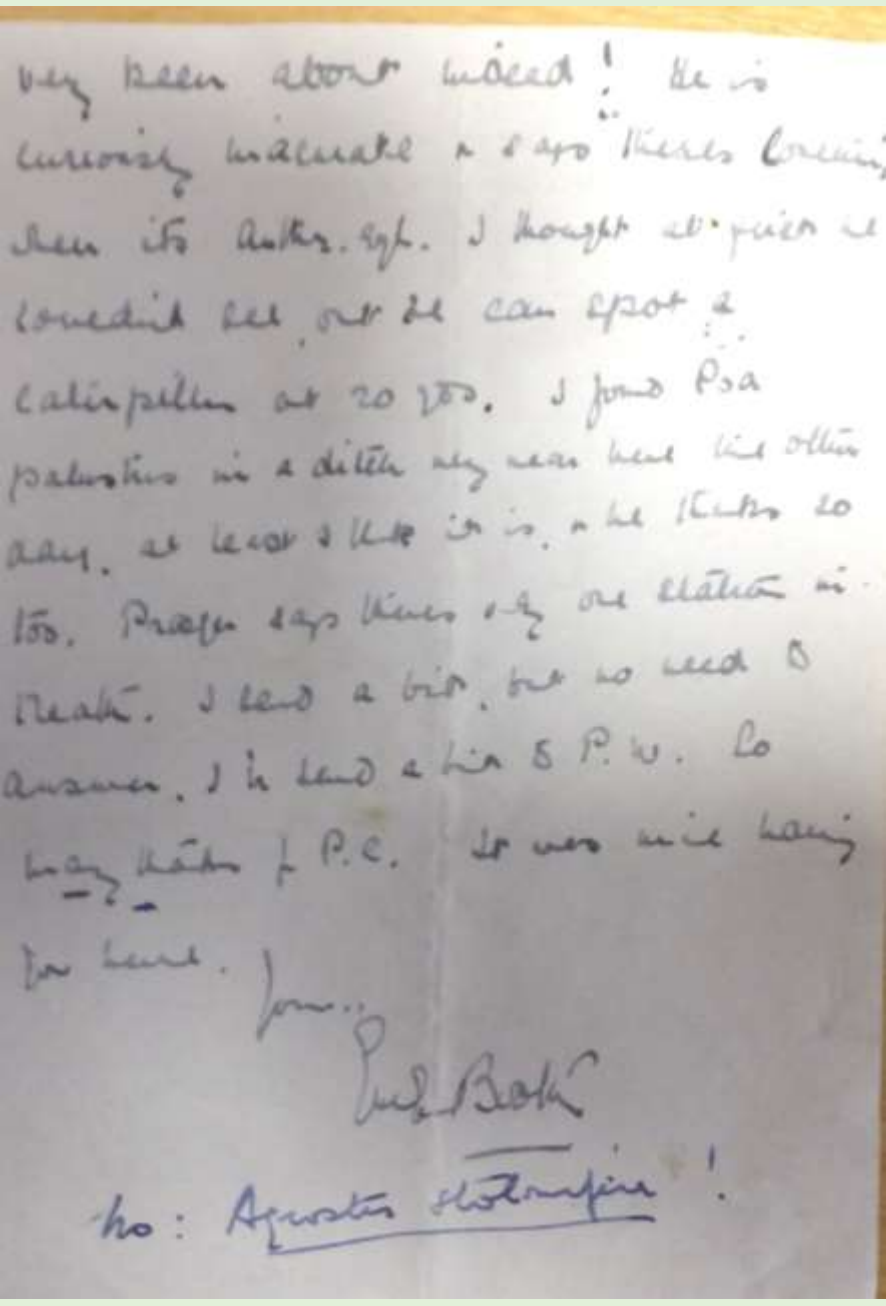 very keen about indeed! He is
curiously inaccurate & says theres
when its I thought at first he
couldnt see, but he can spot a
caterpillar at 20 yds. I found Poa
palustris in a ditch very near here the other
day, at least I think it is, & he thinks so
too. Praeger says theres only one station in
Meath. I send a bit, but no need to
answer. I'll send a bit to P.W. So
many thanks for P.C. It was nice having
you here.
Yours..
No: Agrostis stolonifera!